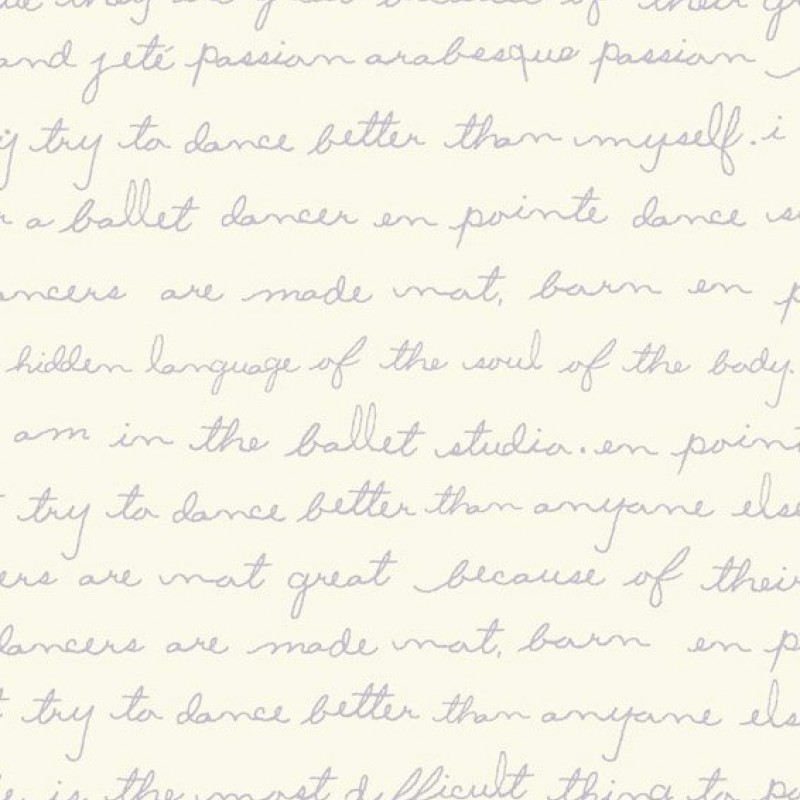 they are great because of their
and jeté passion arabesque passion
try to dance better than myself. i
a ballet dancer en pointe dance
ancers are made not, born en p
hidden language of the soul of the body.
am in the ballet studio. en point
try to dance better than anyone else
ers are not great because of their
dancers are made not, born en p
try to dance better than anyone els
is the most difficult thing to